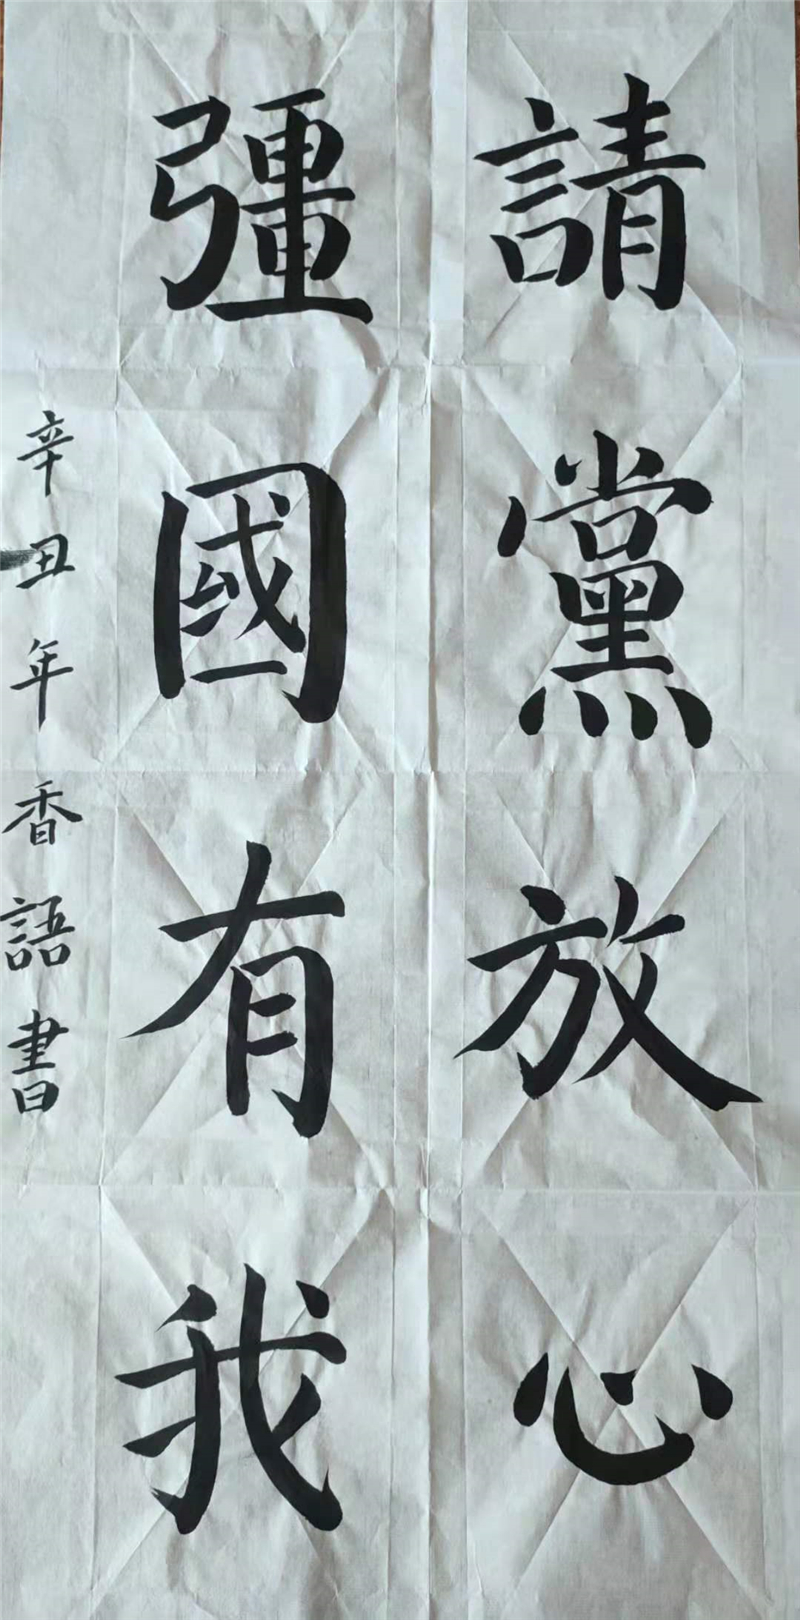 請黨放心
彊國有我
辛丑年香語書